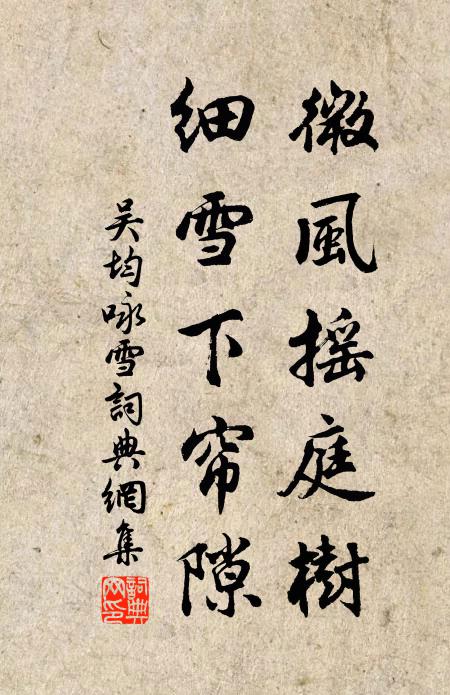 微風摇庭樹
细雪下帘隙
吴均咏雪詞典網集
詞典
网印